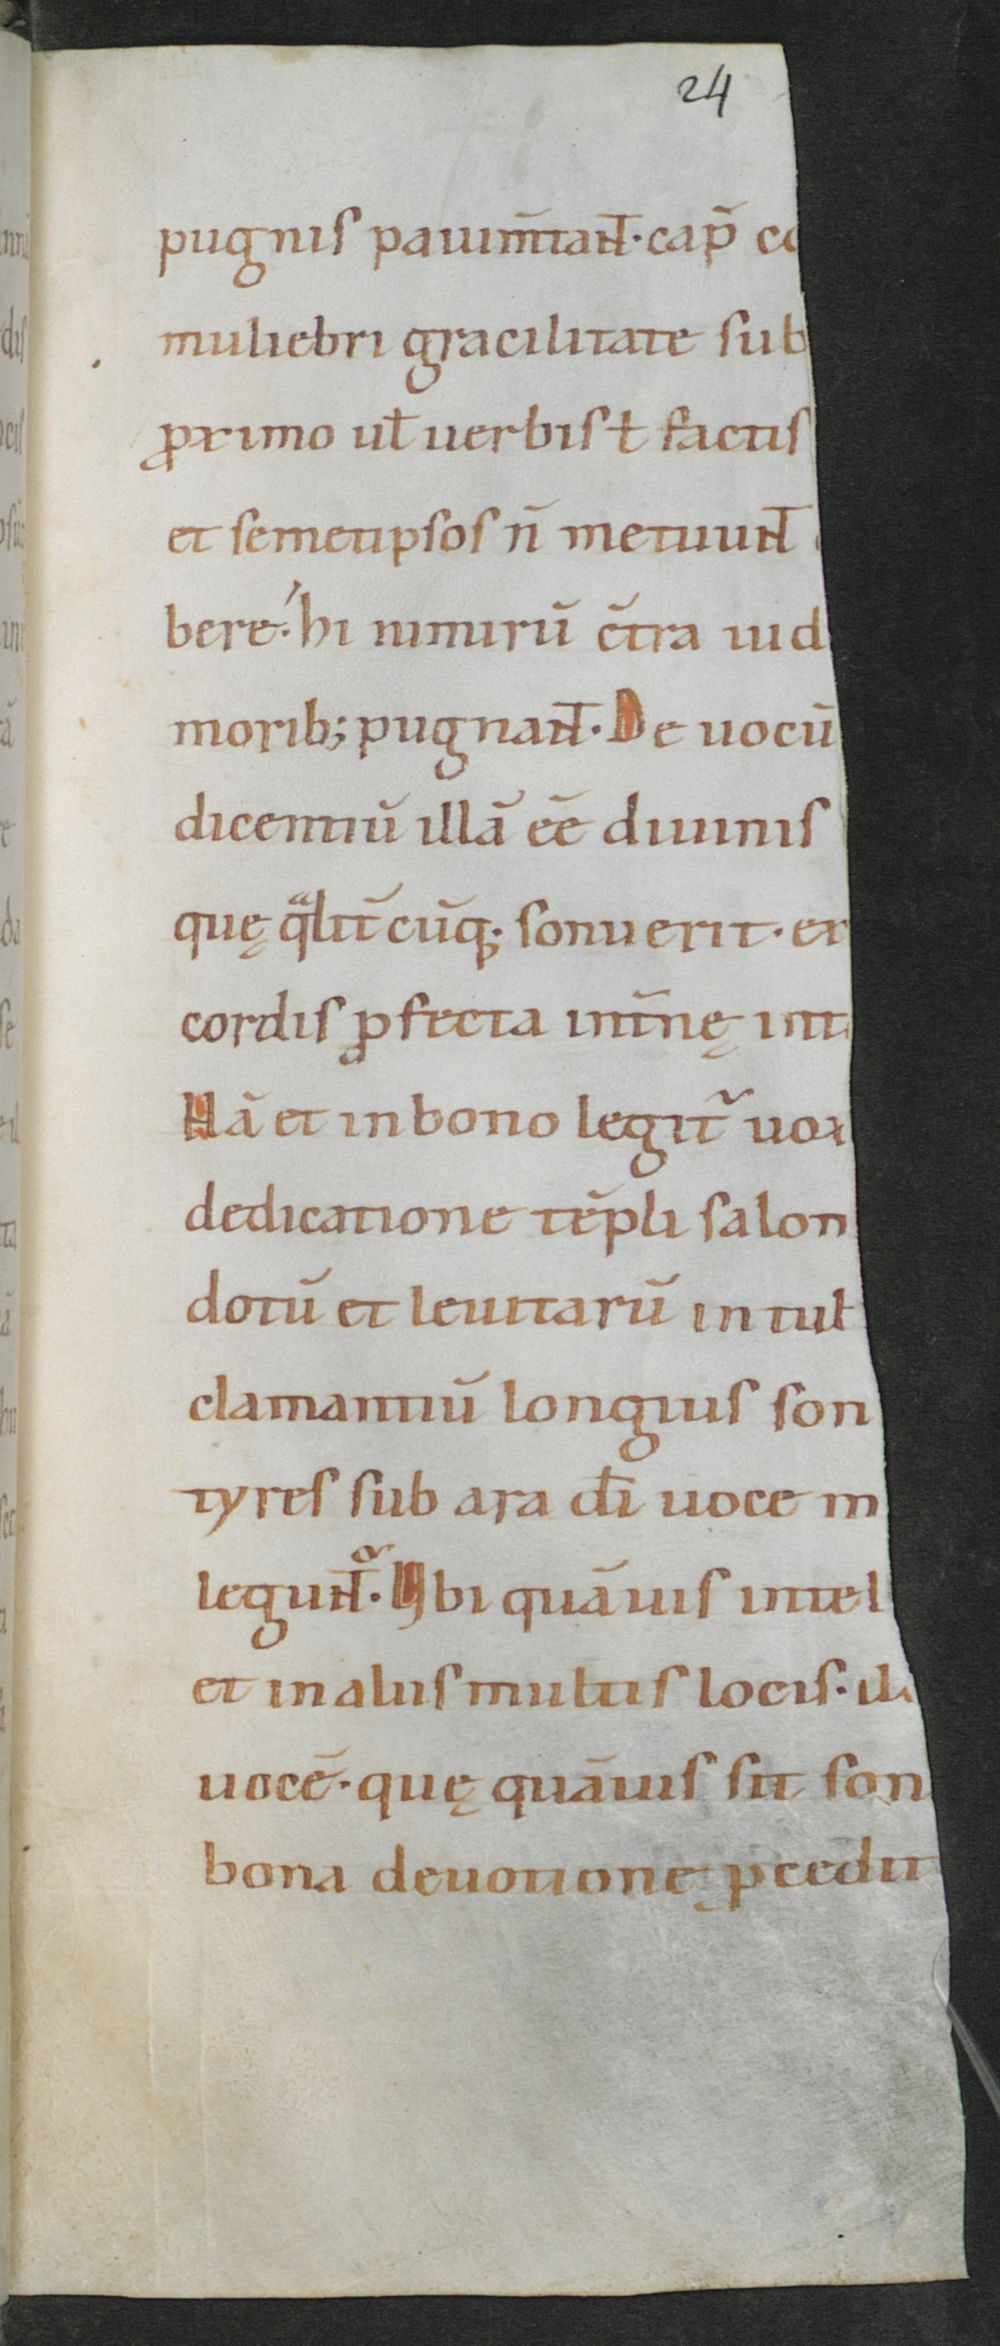 24
pugnis pauim̄taɴ̄t. cap̄ co
muliebri gracilitate sub
ꝓximo ul̄ uerbis ł factis
et semetipsos n̄ metuuɴ̄t
bere. hi nimirū c̄tra iud
morib; pugnaɴ̄t. De uocū
dicentiū illā eē diuinis
quę qͣlit̄cūq; sonuerit. ex
cordis ꝑfecta int̄nę int
Nā et in bono legit᷑ uox
dedicatione tēpli salom
dotū et leuitarū in tub
clamantiū longius son
tyres sub ara d̄i uoce m
leguɴ̄t᷑. Ubi quāuis intel
et in aliis multis locis. ill
uocē. quę quāuis sit son
bona deuotione ꝓcedit